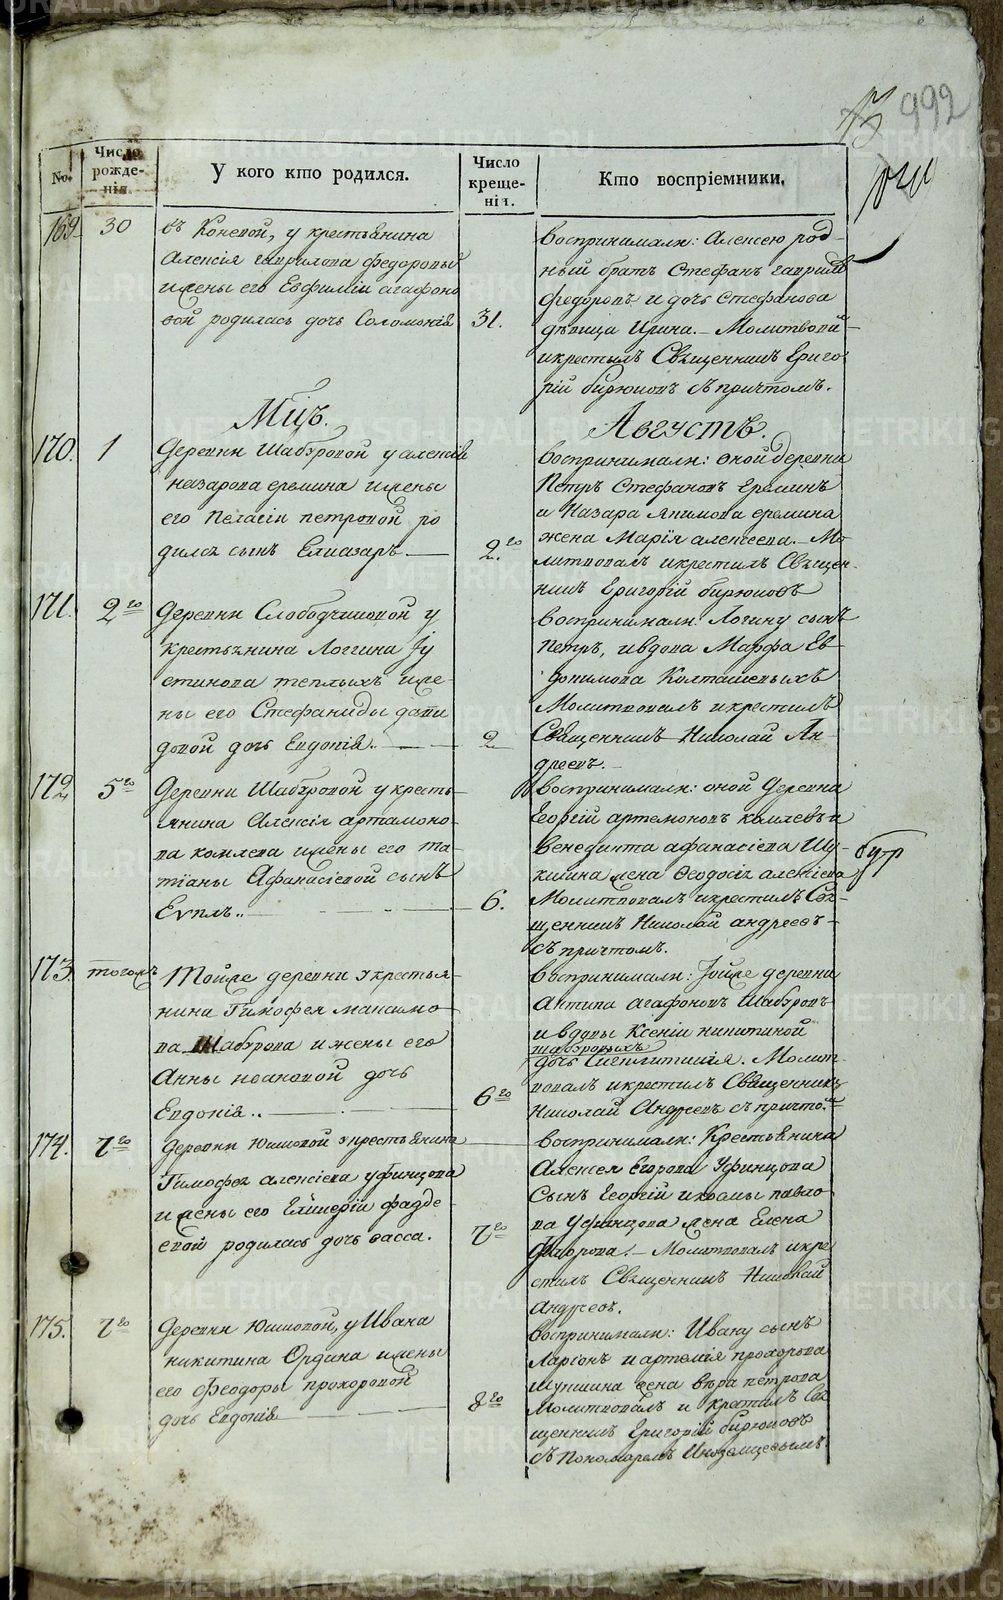 992
No.
Число рожде-нія
У кого кто родился.
Число креще-нія.
Кто воспріемники.
169
30
въ Коневой, у крестьянина
Алексія гаврилова федоровы
и жены его Евфиміи агафоно
вой родилась дочь Соломонія
31.
воспринимали: Алексею род-
ный братъ Стефанъ гаврилъ
федоровъ и дочь Стефанова
дѣвица Ирина. Молитвовалъ
и крестилъ Священникъ Григо-
рій бирюковъ съ причтомъ.
Мцъ.
Августъ.
170.
1
Деревни Шабровой у алексія
назарова еремина и жены
его Пелагіи петровой ро
дился сынъ Елиазаръ
2.го
воспринимали: оной деревни
Петръ Стефановъ Ереминъ
и Назара Якимова еремина
жена Марія алексеева. Мо-
литвовалъ и крестилъ Священ-
никъ Григорій бирюковъ
171.
2го
Деревни Слободчиковой у
крестьянина Логгина Іу
стинова теплыхъ и же-
ны его Стефаниды дави
довой дочь Евдокія.
2
воспринимали: Логину сынъ
Петръ, и вдова Марфа Ев-
докимова Колташевыхъ
Молитвовалъ и крестилъ
Священникъ Николай Ан-
дреевъ.
172
5го
Деревни Шабровой у кресть-
янина Алексія артамоно-
ва комлева и жены его та-
тіаны Афанасіевой сынъ
Евплъ..
6.
воспринимали: оной Деревни
Георгій артемоновъ комлевъ и
венедикта афанасіева Шу-
кшина жена Феодосія алексіева
Молитвовалъ и крестилъ Свя-
щенникъ Николай андреевъ
съ причтомъ.
173
тогожъ
Тойже деревни у крестья-
нина Тимофея максимо-
ва Шаброва и жены его
Анны ивановой дочь
Евдокія..
6го
воспринимали: Тойже деревни
Антипа агафоновъ Шабровъ
и вдовы Ксеніи никитиной
шабровыхъ
дочь Молит-
вовалъ и крестилъ Священникъ
Николай Андреевъ съ причто.
174.
7го
Деревни Юшковой у крестьянина
Тимофея алексіева уфинцова
и жены его Гликеріи фадде
евой родилась дочь васса.
7го
воспринимали: Крестьянина
Алексея Егорова Уфинцова
Сынъ Георгій и козмы павло
ва Уфинцова жена Елена
Федорова. Молитвовалъ и кре
стилъ Священникъ Николай
Андреевъ.
175.
7го
Деревни Юшковой, у Ивана
никитина Ордина и жены
его Феодоры прохоровой
дочь Евдокія
8го
воспринимали: Ивану сынъ
Ларіонъ и артемія прохорова
шукшина жена вѣра петрова
Молитвовалъ и крестилъ Свя
щенникъ Григорій бирюковъ
съ Пономаремъ Иноземцовымъ.
METRIKI.GASO-URAL.RU